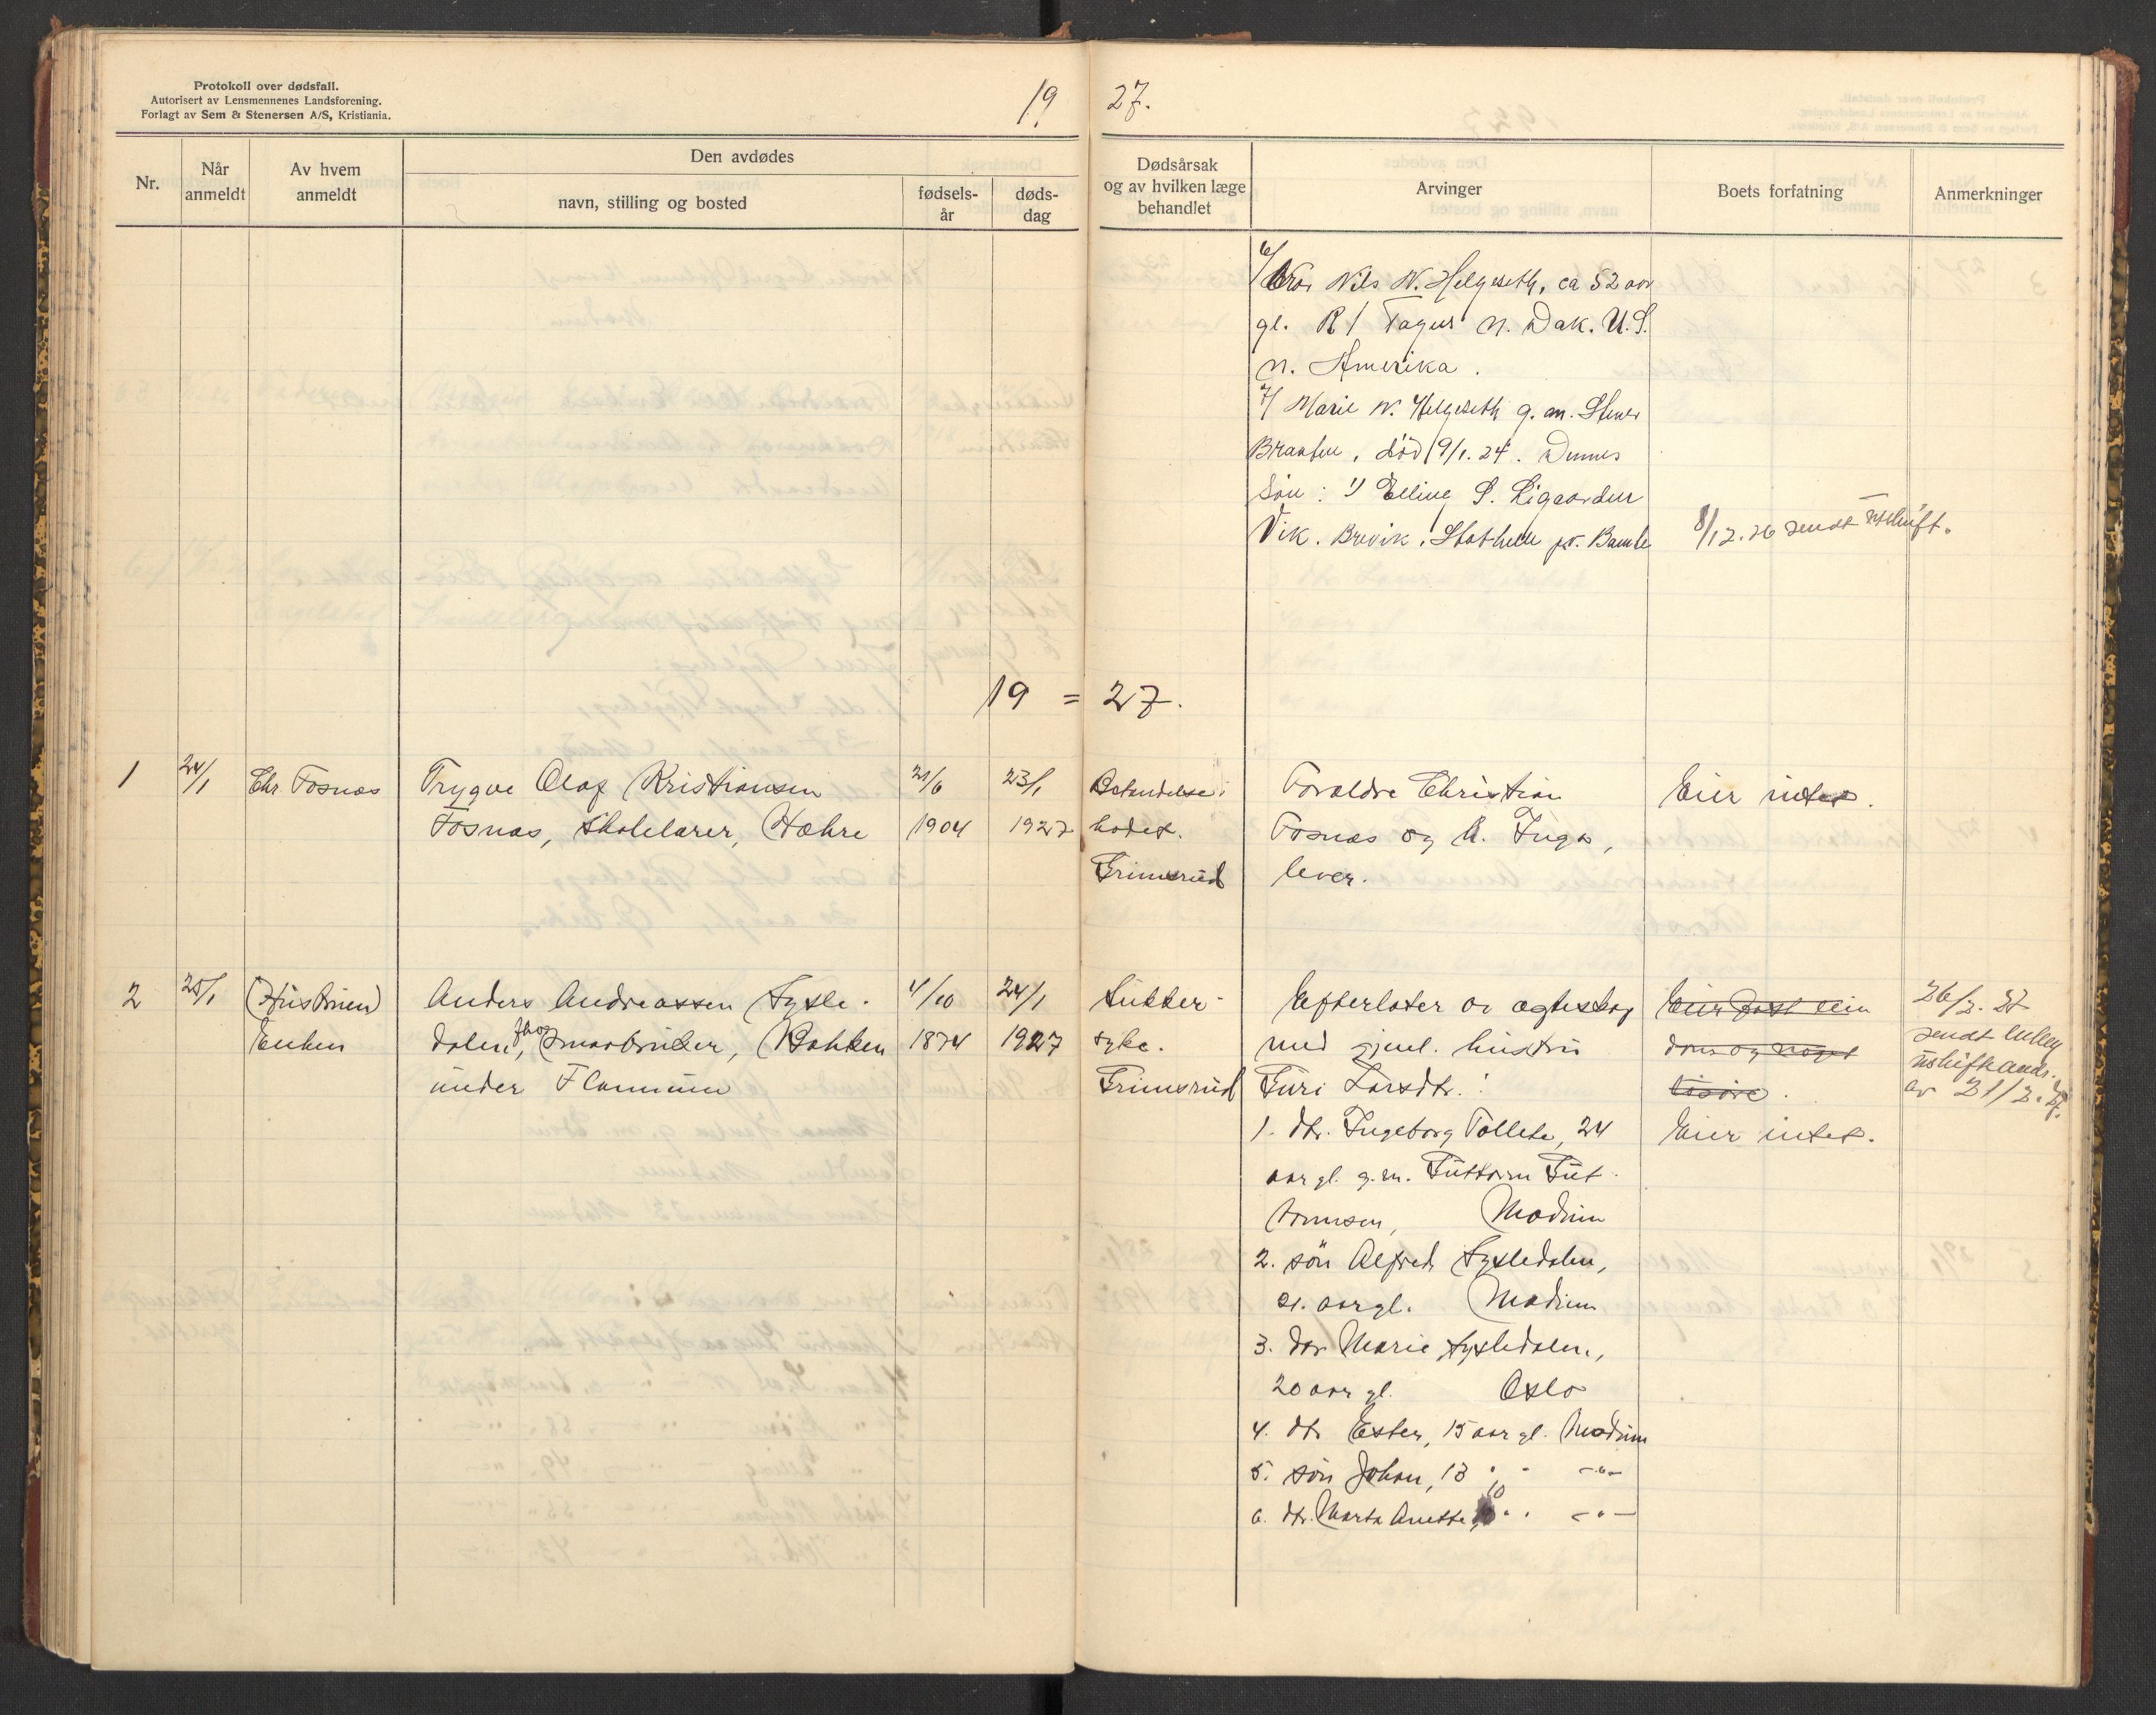 Protokoll over dødsfall.
Autorisert av Lensmennenes Landsforening.
Forlagt av Sem & Stenersen A/S, Kristiania.
19 27.
Nr.
Når anmeldt
Av hvem anmeldt
Den avdødes
navn, stilling og bosted
fødsels-år
døds-dag
Dødsårsak og av hvilken læge behandlet
Arvinger
Boets forfatning
Anmerkninger
6/ Bror Nils N. Helgeseth, ca 52 aar
gl. R 1 Tagus N. Dak. U.S.
N. Amerika.
7/ Marie N. Helgeseth g. m. Stener
Braaten, död 19/1. 24. Dennes
Sön: 1) Elling S. Ligaarden
Vik. Brevik. Stathelle pr. Bamble
8/12.26 sendt utskrift.
19 = 27.
1 24/1 Chr. Fosnæs
Trygve Olaf Kristiansen
Fosnæs, skolelærer, Hæhre
21/6
1904
23/1
1927
Betendelse i
hodet.
Grimsrud
Foreldre Christian
Fosnæs og h. Inga,
lever.
Eier intet.
2 25/1 (Hustruen)
Enken
Anders Andreassen Sysle-
dalen, fho smaabruker, Bakken
under Flannum
4/10
1874
24/1
1927
Sukker-
syke.
Grimsrud
Efterlater av egteskap
med gjenl. hustru
Guri Larsdtr.:
1. dtr. Ingeborg Tollete, 24
aar gl. g. m. Guttorm Gut-
tormsen, Modum
2. sön Alfred Sysledalen,
21. aar gl. Modum
3. dtr Marie Sysledalen,
20 aar gl. Oslo
4. dtr Ester, 15 aar gl. Modum
5. sön Johan, 13 " " -"-
6. dtr. Marta Anette, 10 " " -"-
Eier fast eien
dom og noget
lösöre.
Eier intet.
26/2. 27
sendt
utskift
av 21/2. 27.